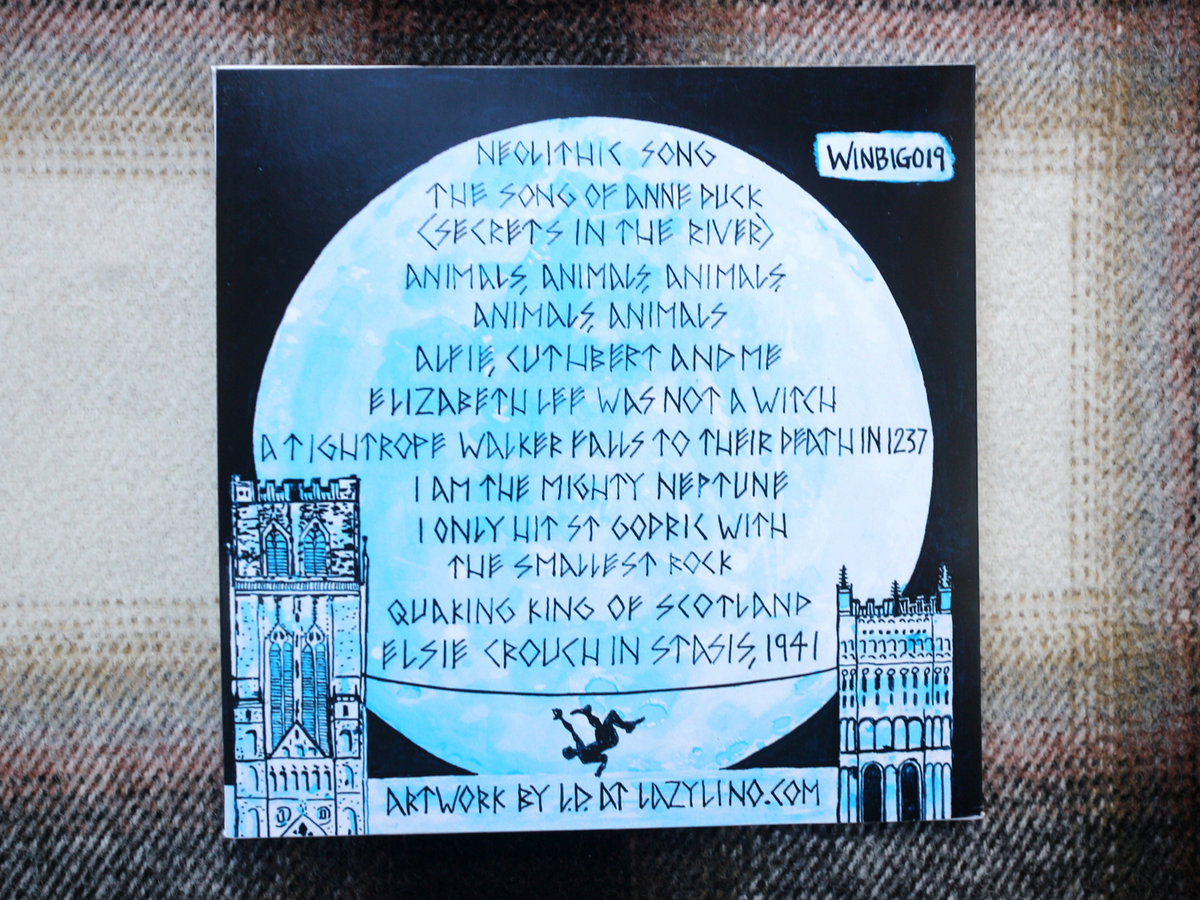 NEOLITHIC SONG
WINBIG019
THE SONG OF ANNE DUCK
(SECRETS IN THE RIVER)
ANIMALS, ANIMALS, ANIMALS,
ANIMALS, ANIMALS
ALFIE, CUTHBERT AND ME
ELIZABETH LEE WAS NOT A WITCH
A TIGHTROPE WALKER FALLS TO THEIR DEATH IN 1237
I AM THE MIGHTY NEPTUNE
I ONLY HIT ST GODRIC WITH
THE SMALLEST ROCK
QUAKING KING OF SCOTLAND
ELSIE CROUCH IN STASIS, 1941
ARTWORK BY L.D. AT LAZYLINO.COM